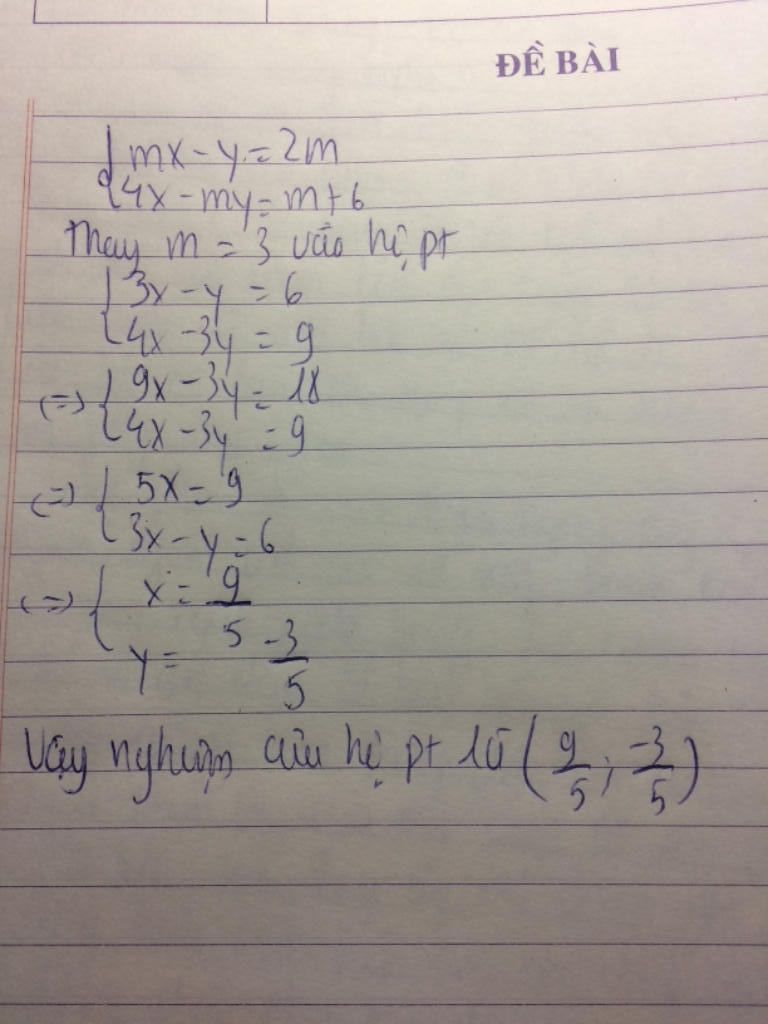 ĐỀ BÀI
mx - y = 2m
4x - my = m + 6
Thay m = 3 vào hệ pt
3x - y = 6
4x - 3y = 9
(=) 9x - 3y = 18
4x - 3y = 9
(=) 5x = 9
3x - y = 6
(=) x = 9/5
y = -3/5
Vậy nghiệm của hệ pt là (9/5; -3/5)